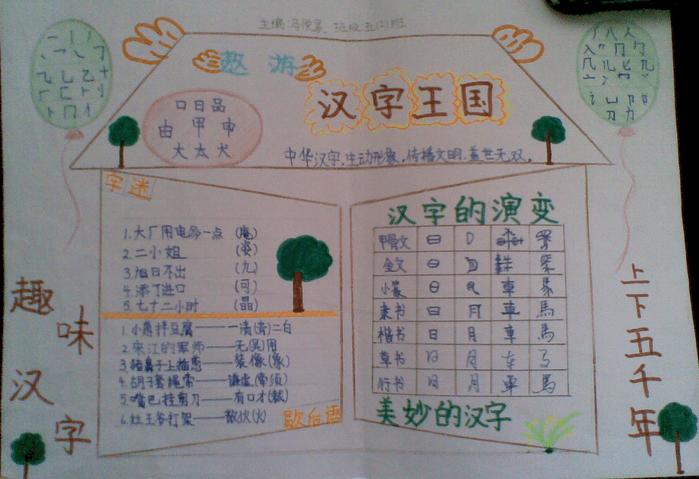 主编:马俊 班级:五(2)班
遨游
汉字王国
口日品
由甲申
大太犬
中华汉字,生动形象,传播文明,盖世无双。
字迷
1.大厂用电多一点 (庵)
2.二小姐 (姿)
3.旭日不出 (九)
4.添丁进口 (可)
5.七十二小时 (晶)
1.小葱拌豆腐——一清(青)二白
2.宋江的军师——无(吴)用
3.猪鼻子上插葱——装像(象)
4.胡子套绳索——谦虚(牵须)
5.嘴巴挂剪刀——有口才(裁)
6.灶王爷打架——散伙(火)
歇后语
汉字的演变
甲骨文 日
金文
小篆 車
隶书 日 月 車 馬
楷书 日 月 車 馬
草书 日 月
行书 日 月 車 馬
美妙的汉字
趣味汉字
上下五千年